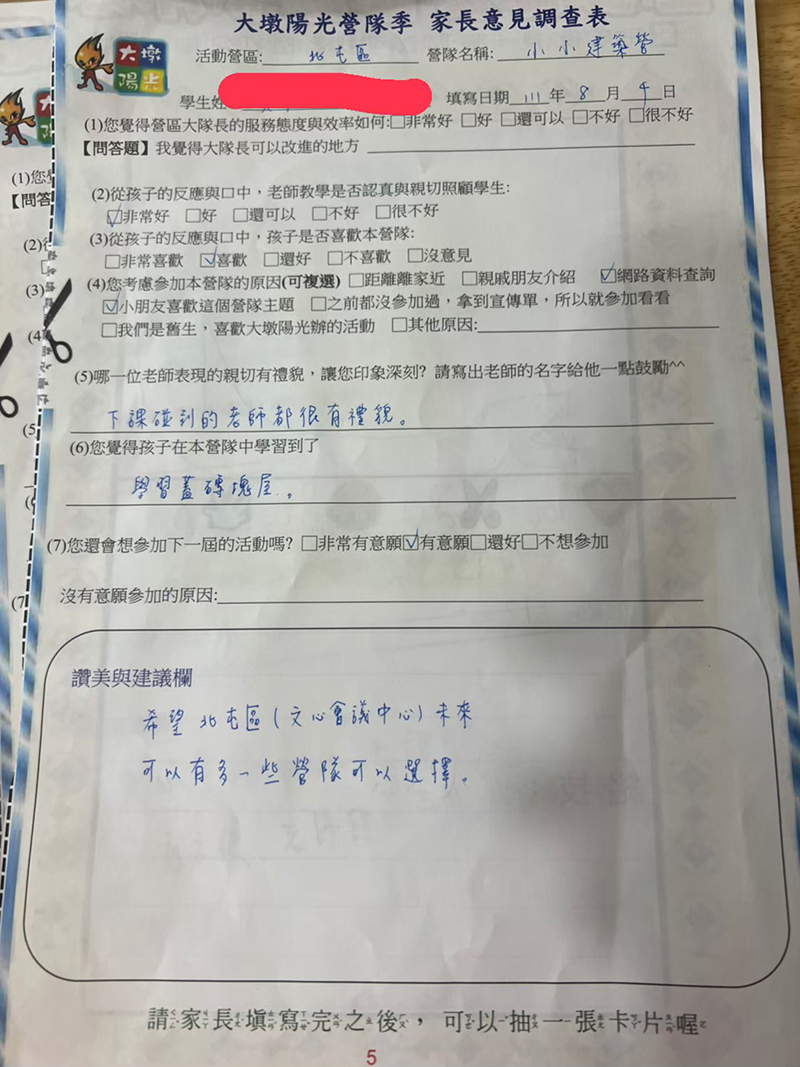 大墩陽光營隊季 家長意見調查表
大墩
陽光
活動營區: 北屯區 營隊名稱: 小小建築營
學生姓 填寫日期 111 年 8 月 4 日
(1)您覺得營區大隊長的服務態度與效率如何:□非常好 □好 □還可以 □不好 □很不好
【問答題】我覺得大隊長可以改進的地方
(2)從孩子的反應與口中，老師教學是否認真與親切照顧學生:
☑非常好 □好 □還可以 □不好 □很不好
(3)從孩子的反應與口中，孩子是否喜歡本營隊:
□非常喜歡 ☑喜歡 □還好 □不喜歡 □沒意見
(4)您考慮參加本營隊的原因(可複選) □距離離家近 □親戚朋友介紹 ☑網路資料查詢
☑小朋友喜歡這個營隊主題 □之前都沒參加過，拿到宣傳單，所以就參加看看
□我們是舊生，喜歡大墩陽光辦的活動 □其他原因:
(5)哪一位老師表現的親切有禮貌，讓您印象深刻? 請寫出老師的名字給他一點鼓勵^^
下課碰到的老師都很有禮貌。
(6)您覺得孩子在本營隊中學習到了
學習蓋磚塊屋。
(7)您還會想參加下一屆的活動嗎? □非常有意願☑有意願□還好□不想參加
沒有意願參加的原因:
讚美與建議欄
希望北屯區(文心會議中心)未來
可以有多一些營隊可以選擇。
請家長填寫完之後，可以抽一張卡片喔
5